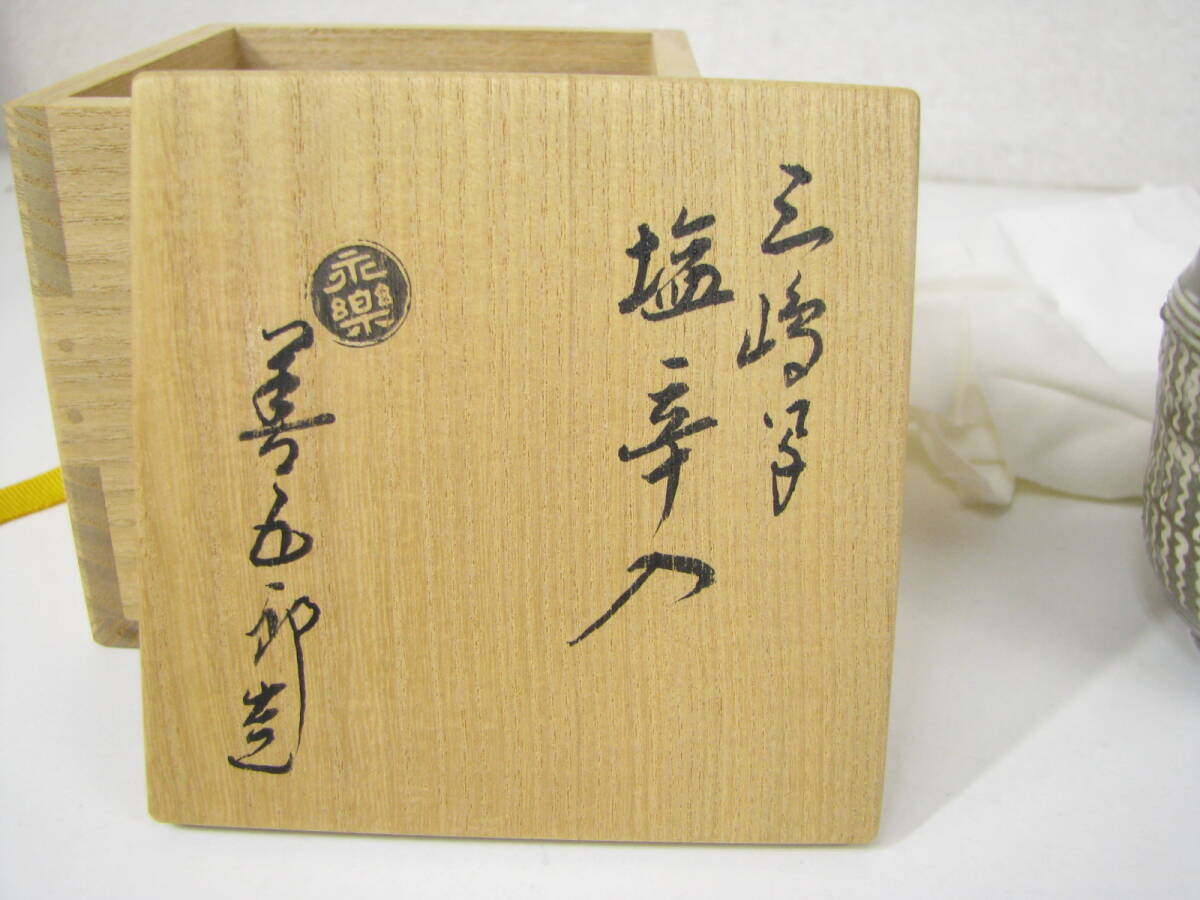 三嶋写
塩辛入
永樂
善五郎造